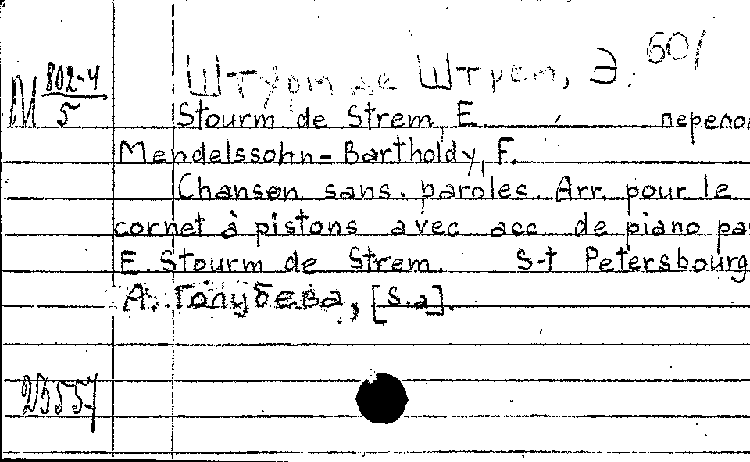 М 802-4/5
Штурм де Штрем, Э. 601
Stourm de Strem, E. перелож
Mendelssohn-Bartholdy, F.
Chanson sans paroles. Arr. pour le
cornet à pistons avec acc. de piano pa
E. Stourm de Strem. S-t Petersbourg
А. Голубева, [s.a].
23557